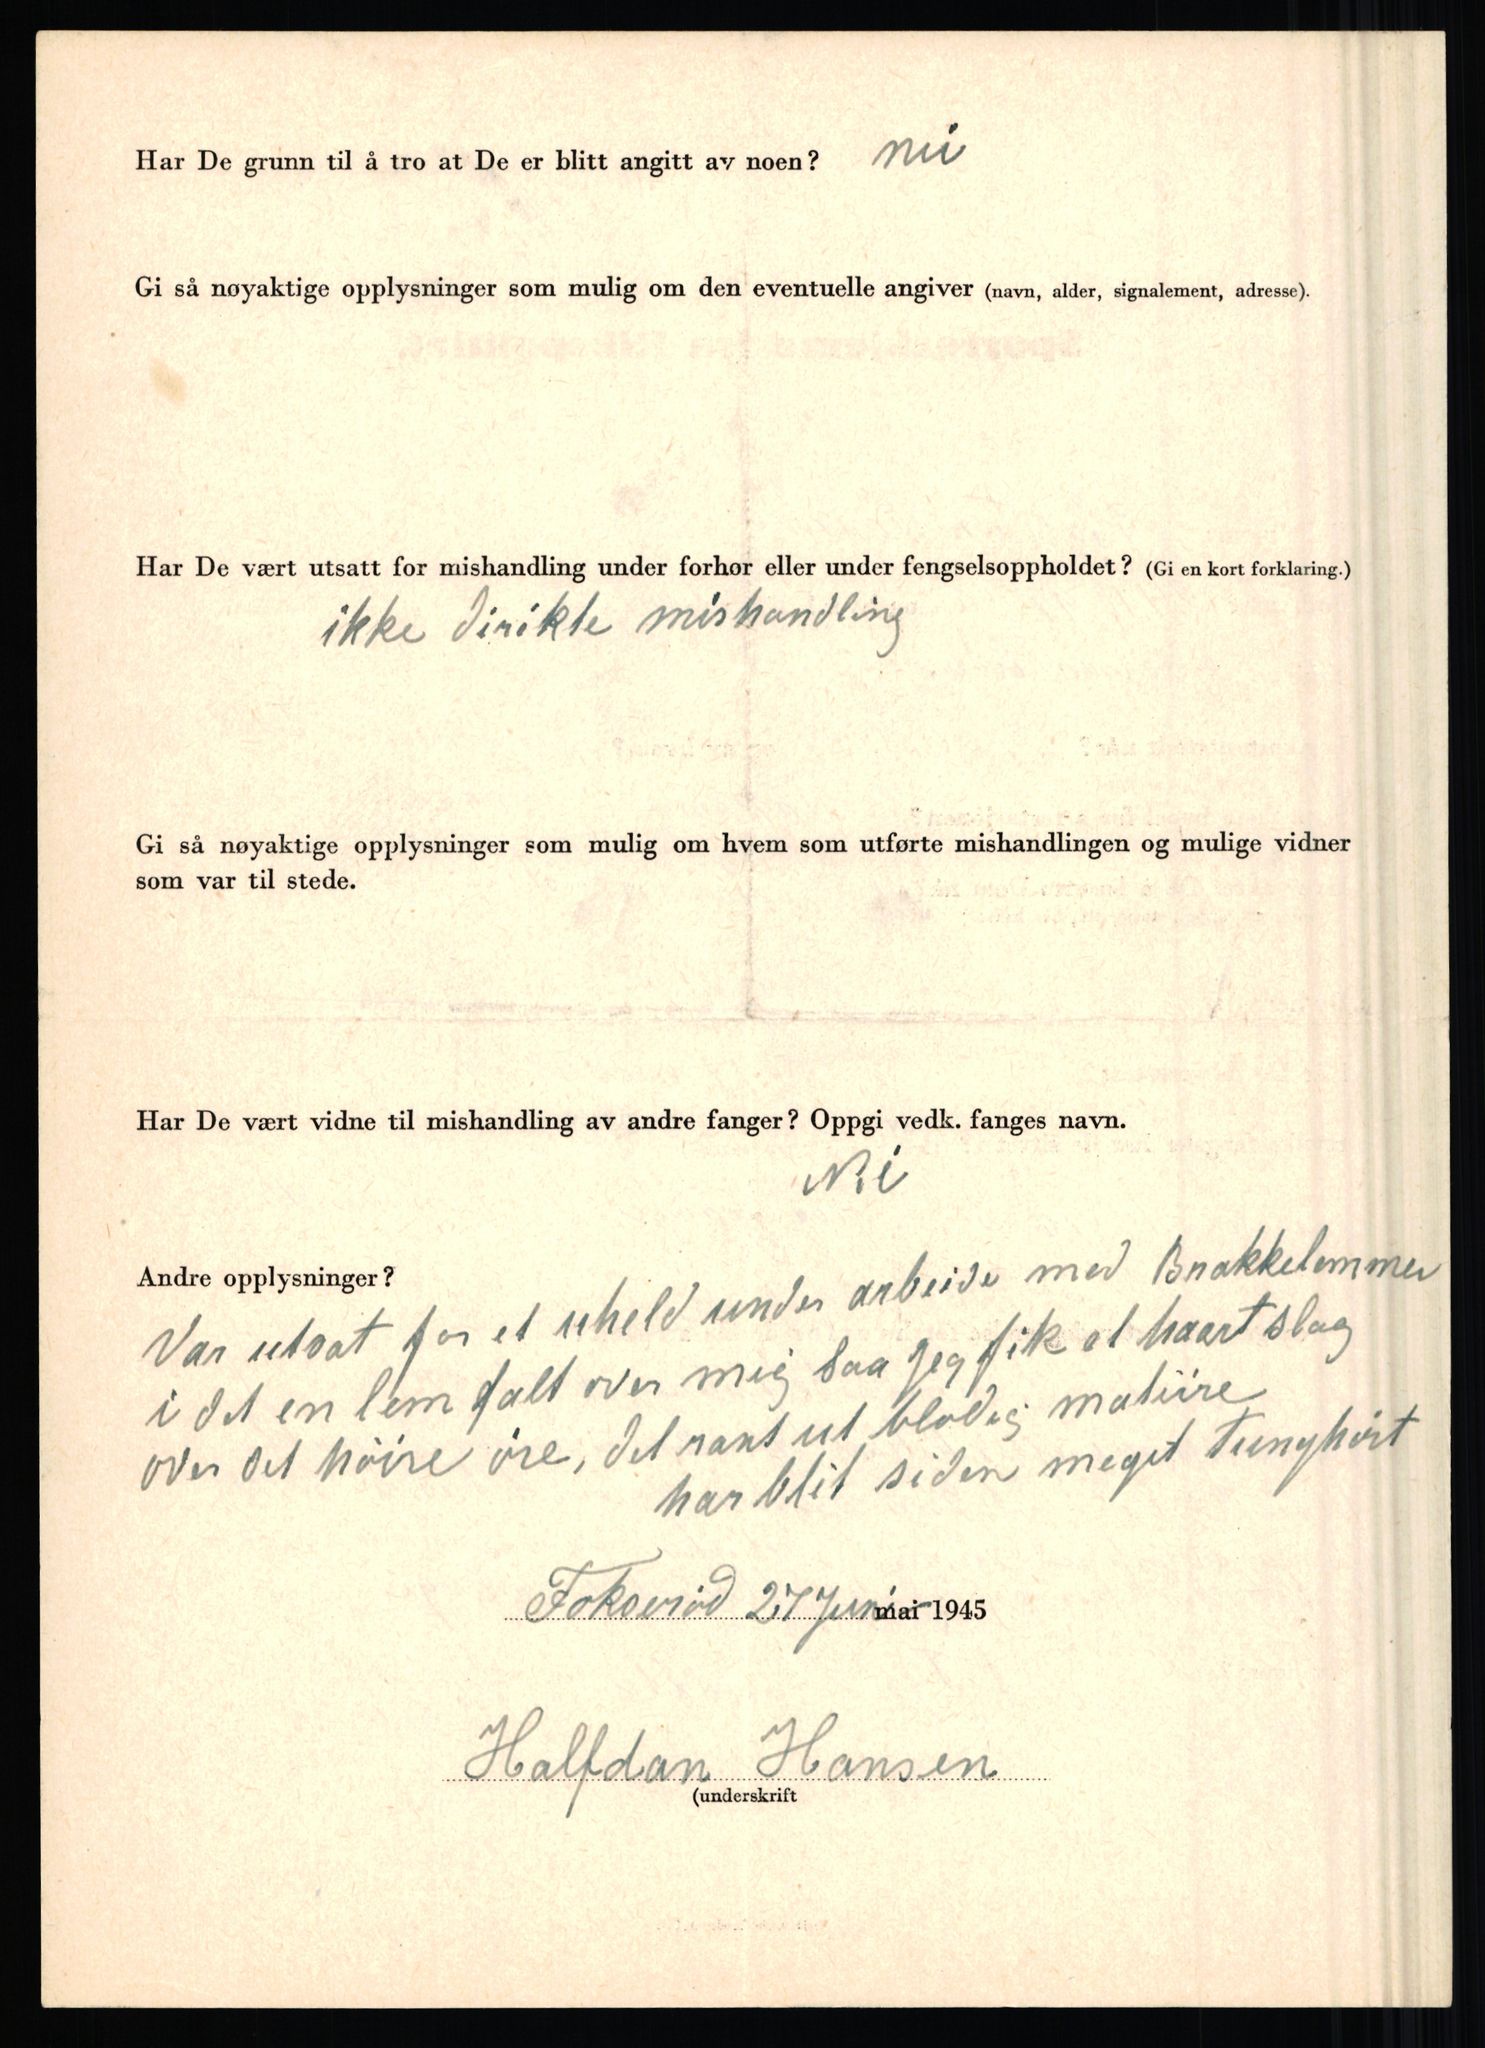 Har De grunn til å tro at De er blitt angitt av noen? nei
Gi så nøyaktige opplysninger som mulig om den eventuelle angiver (navn, alder, signalement, adresse).
Har De vært utsatt for mishandling under forhør eller under fengselsoppholdet? (Gi en kort forklaring.)
ikke direkte mishandling
Gi så nøyaktige opplysninger som mulig om hvem som utførte mishandlingen og mulige vidner
som var til stede.
Har De vært vidne til mishandling av andre fanger? Oppgi vedk. fanges navn.
Nei
Andre opplysninger?
Var utsat for et uheld under arbeide med Brakkelemmer
i det en lem falt over mig saa jeg fik et haart slag
over det høire øre, det rant ut blodig matiire
har blit siden meget tunghørt
Fokserød 27 Juni mai 1945
Halfdan Hansen
(underskrift